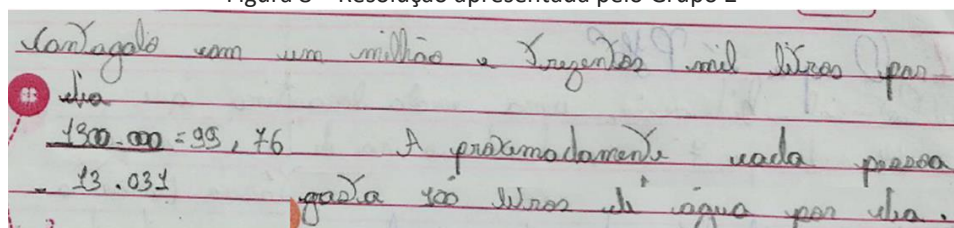 Figura 8 – Resolução apresentada pelo Grupo 2
Cantagalo com um milhão e trezentos mil litros por
dia
1300.000 = 99,76 A proximadamente cada pessoa
13.031 gasta 100 litros de água por dia.